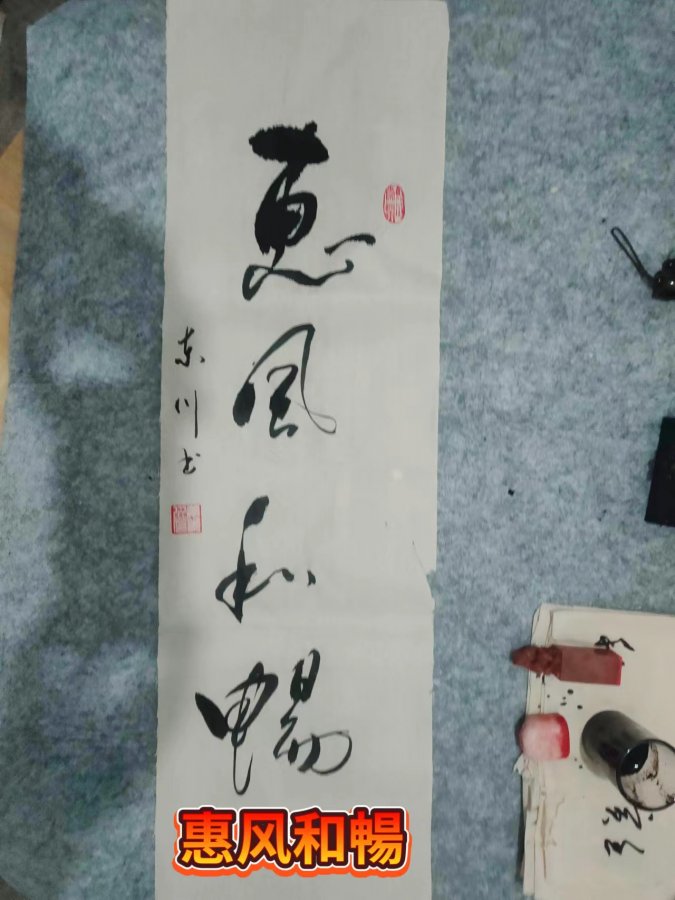 惠风和畅
东川书
惠风和暢